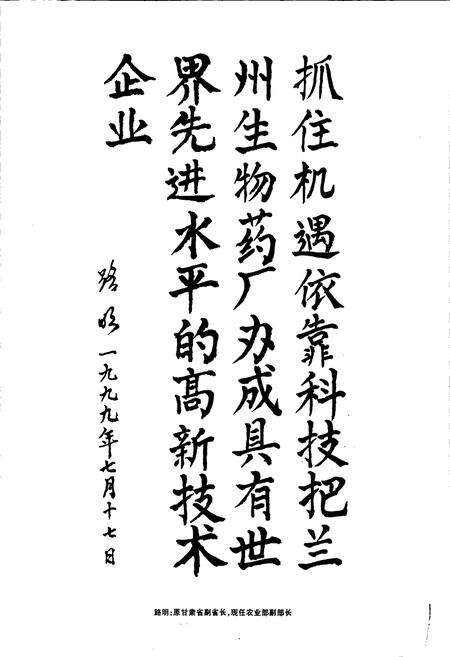 抓住机遇依靠科技把兰
州生物药厂办成具有世
界先进水平的高新技术
企业
路明 一九九九年七月十七日
路明:原甘肃省副省长,现任农业部副部长